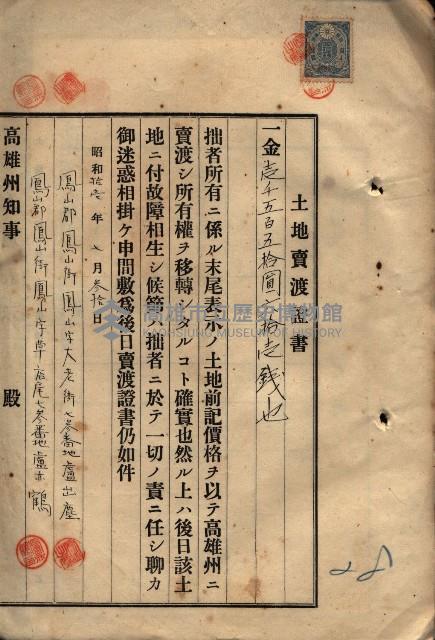 土地賣渡證書
一金壱千五百五拾圓六拾壱錢也
拙者所有ニ係ル末尾表示ノ土地前記價格ヲ以テ高雄州ニ
賣渡シ所有權ヲ移轉シタルコト確實也然ル上ハ後日該土
地ニ付故障相生シ候節ハ拙者ニ於テ一切ノ責ニ任シ聊カ
御迷惑相掛ケ申間敷爲後日賣渡證書仍如件
昭和拾 年七月參拾
鳳山郡鳳山街鳳山字大老街七參番地盧出塵
鳳山郡鳳山街鳳山字草店尾七參番地盧赤鶴
高雄州知事 殿
高雄市立歷史博物館
KAOHSIUNG MUSEUM OF HISTORY